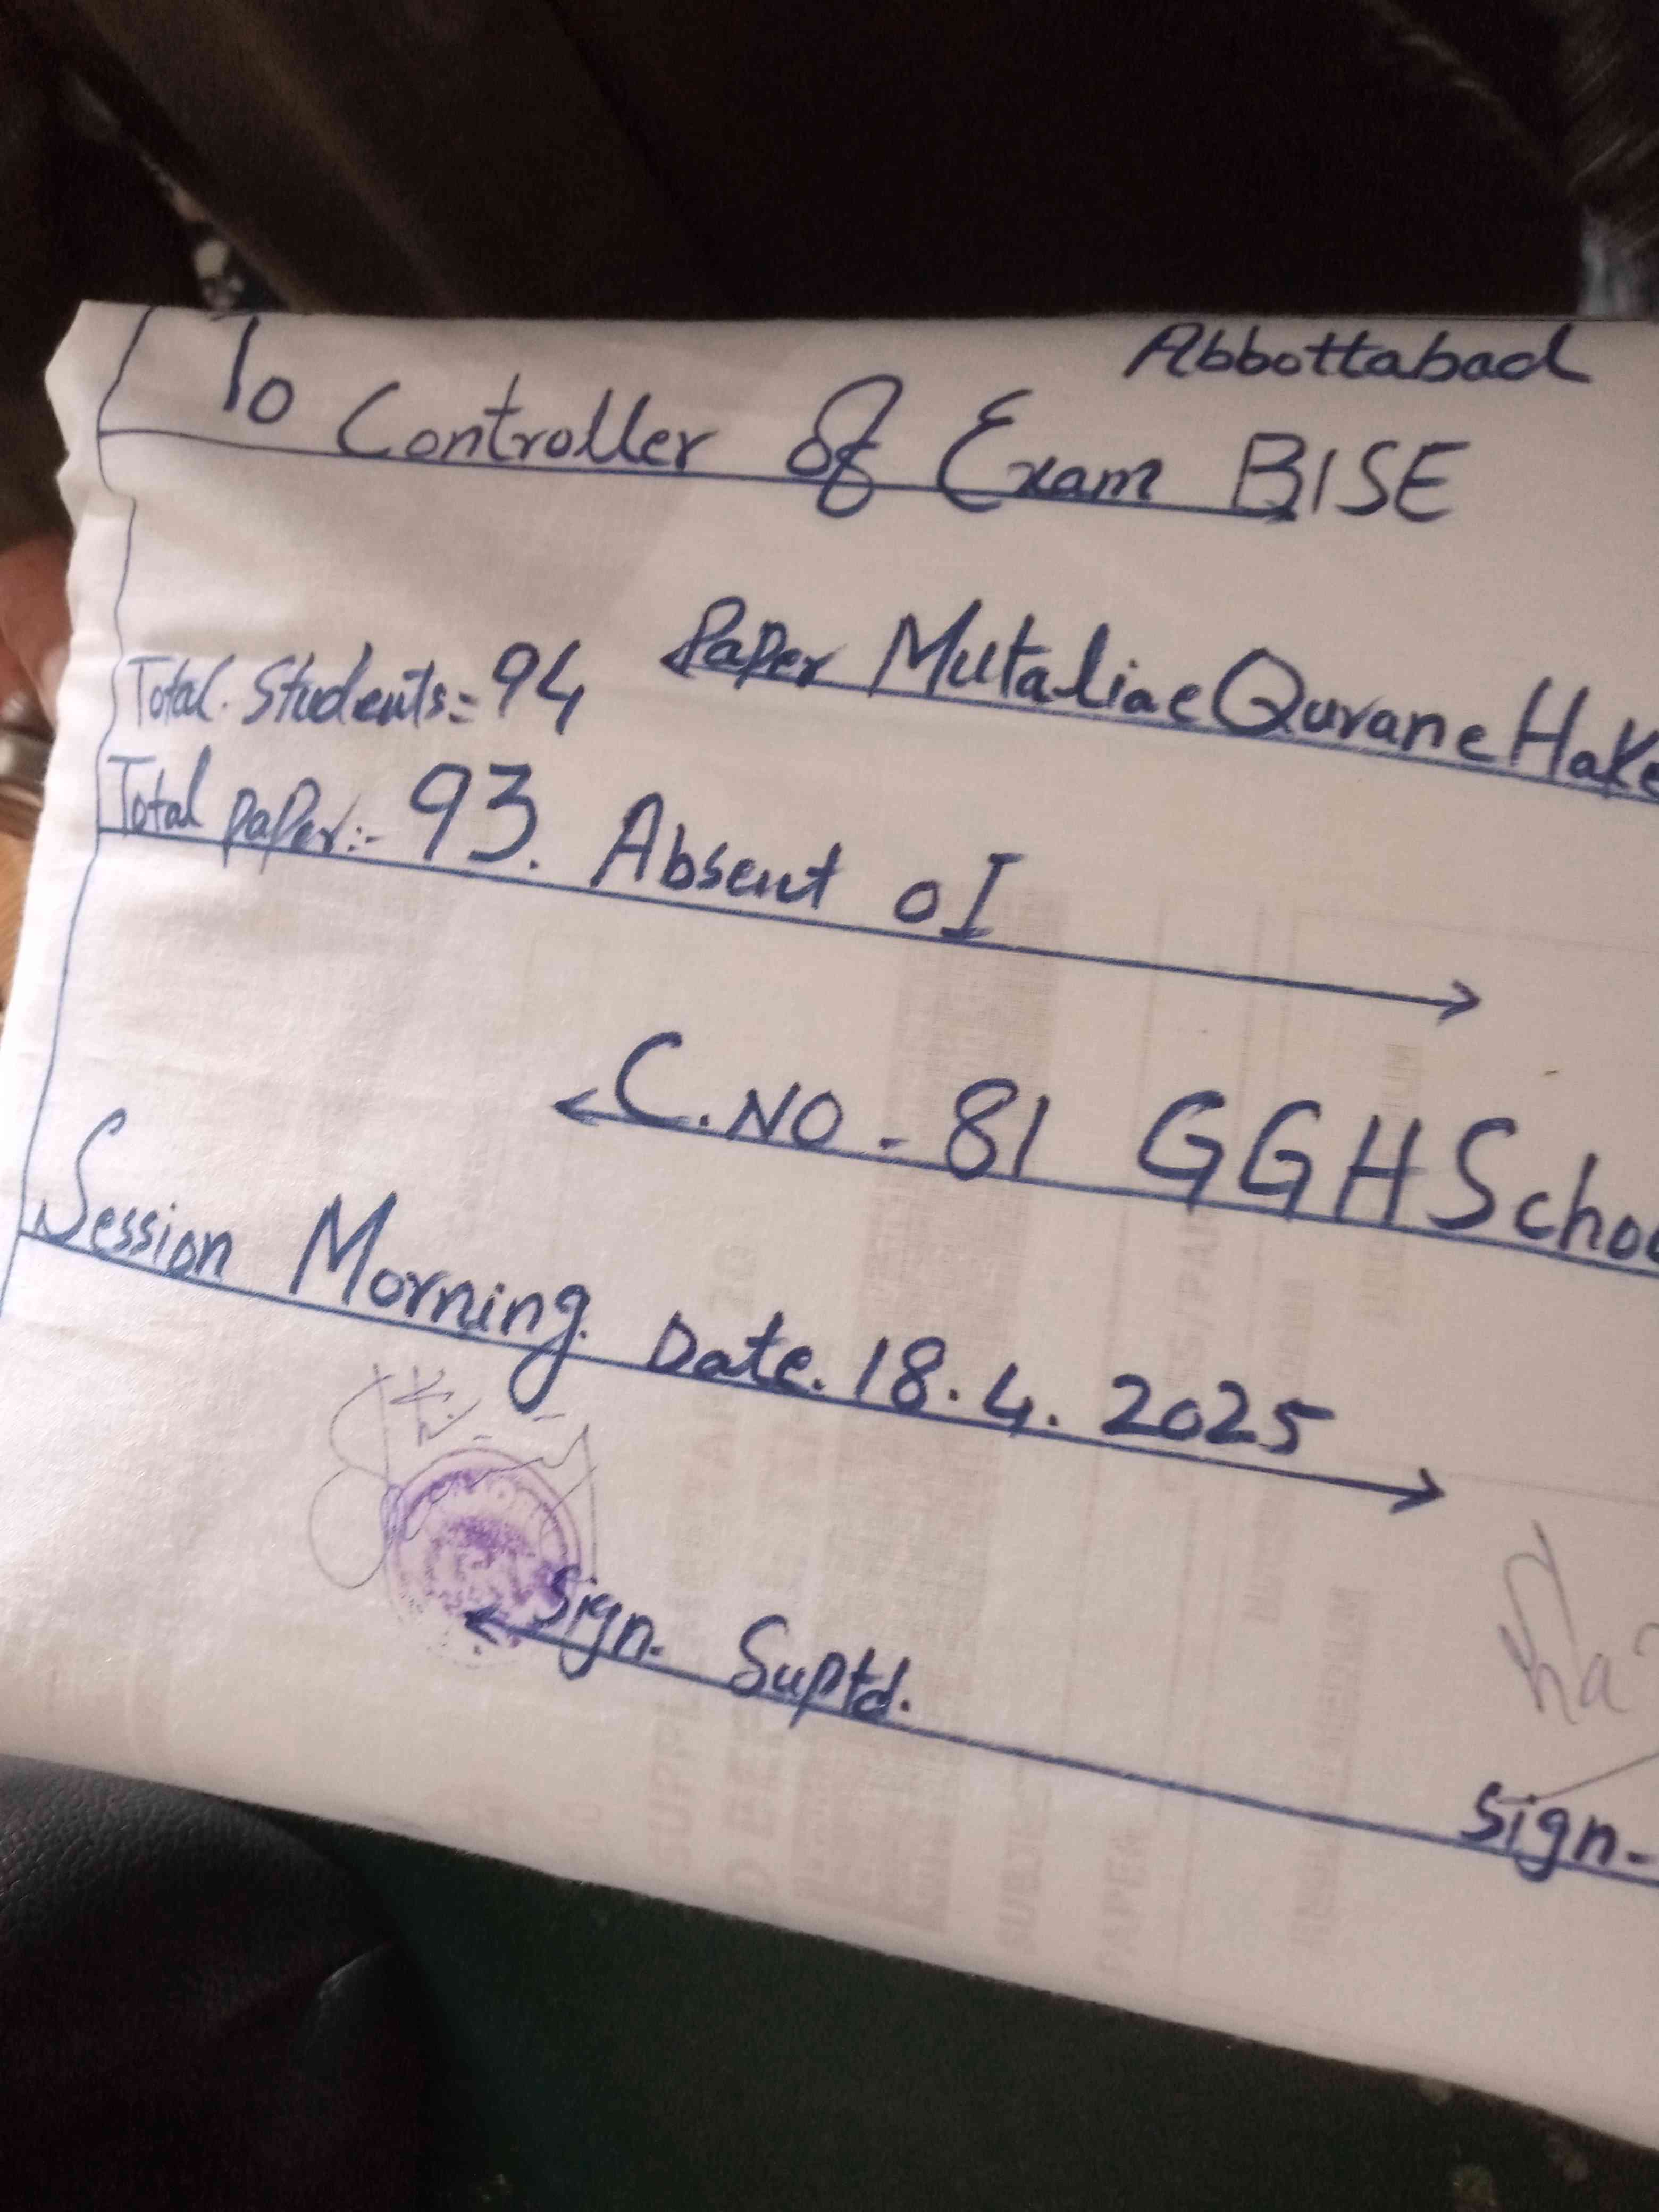 Abbottabad
To Controller Of Exam BISE
Paper Mutaliae Qurane Hake
Total. Students = 94
Total paper:- 93. Absent 01
C.NO - 81 GGHSchoo
Session Morning. Date. 18.4.2025
Sign. Suptd.
Sign-